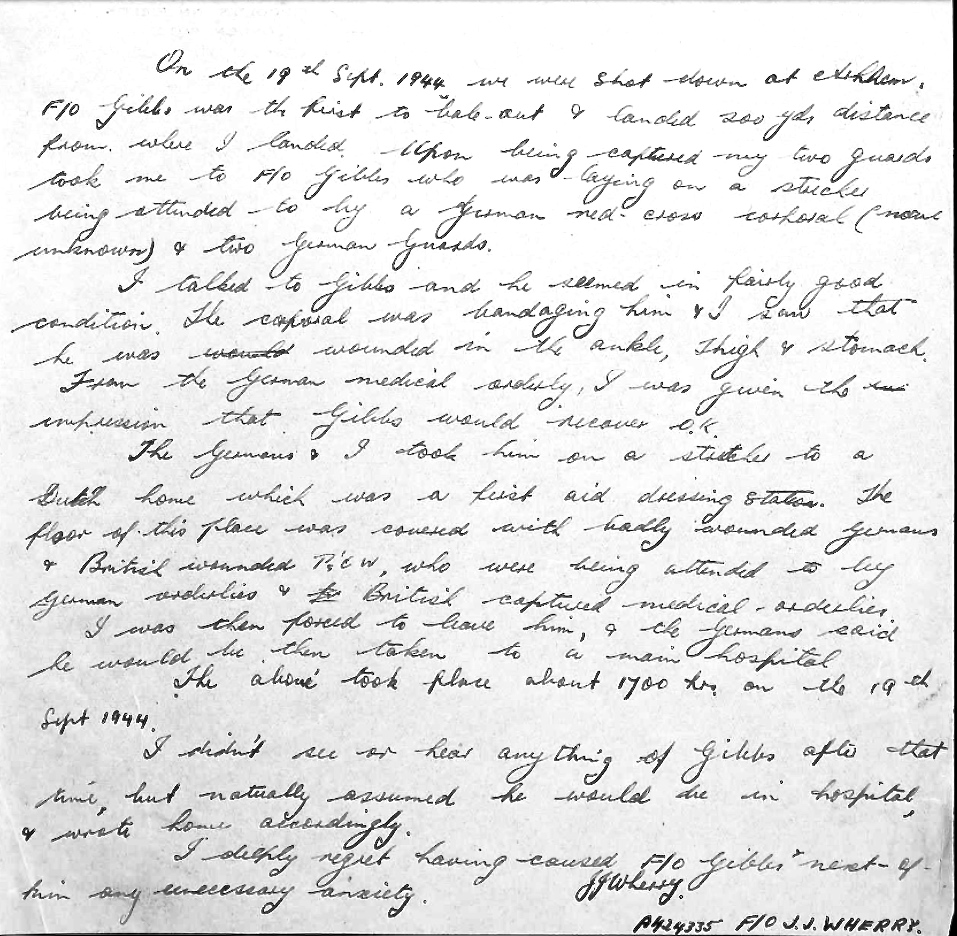 On the 19th Sept. 1944 we were shot down at Arnhem.
F/O Gibbs was the first to bale-out & landed 200 yds distance
from where I landed. Upon being captured my two guards
took me to F/O Gibbs who was laying on a stretcher
being attended to by a German red-cross corporal (name
unknown) & two German Guards.
I talked to Gibbs and he seemed in fairly good
condition. The corporal was bandaging him & I saw that
he was would wounded in the ankle, thigh & stomach.
From the German medical orderly, I was given the
impression that Gibbs would recover O.K.
The Germans & I took him on a stretcher to a
Dutch home which was a first aid dressing station. The
floor of this place was covered with badly wounded Germans
& British wounded P's.O.W, who were being attended to by
German orderlies & British captured medical-orderlies.
I was then forced to leave him, & the Germans said
he would be then taken to a main hospital
The above took place about 1700 hrs on the 19th
Sept 1944.
I didn't see or hear anything of Gibbs after that
time, but naturally assumed he would be in hospital,
& wrote home accordingly.
I deeply regret having caused F/O Gibbs' next-of-
kin any unnecessary anxiety.
JJWherry.
A424335 F/O J.J. WHERRY.